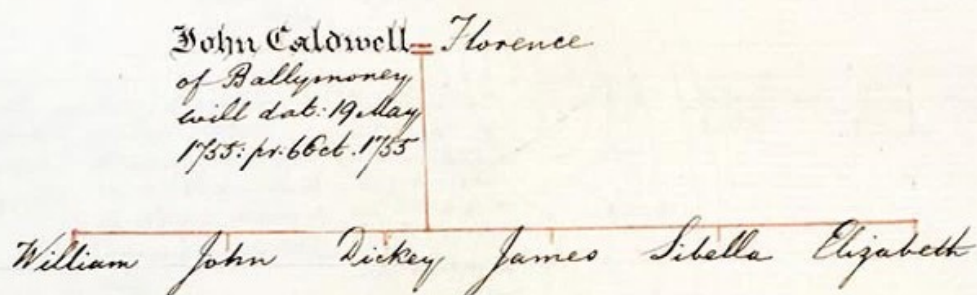 John Caldwell = Florence
of Ballymoney
will dat: 19 May
1755: pr: 6 Oct. 1755
William John Dickey James Sibella Elizabeth